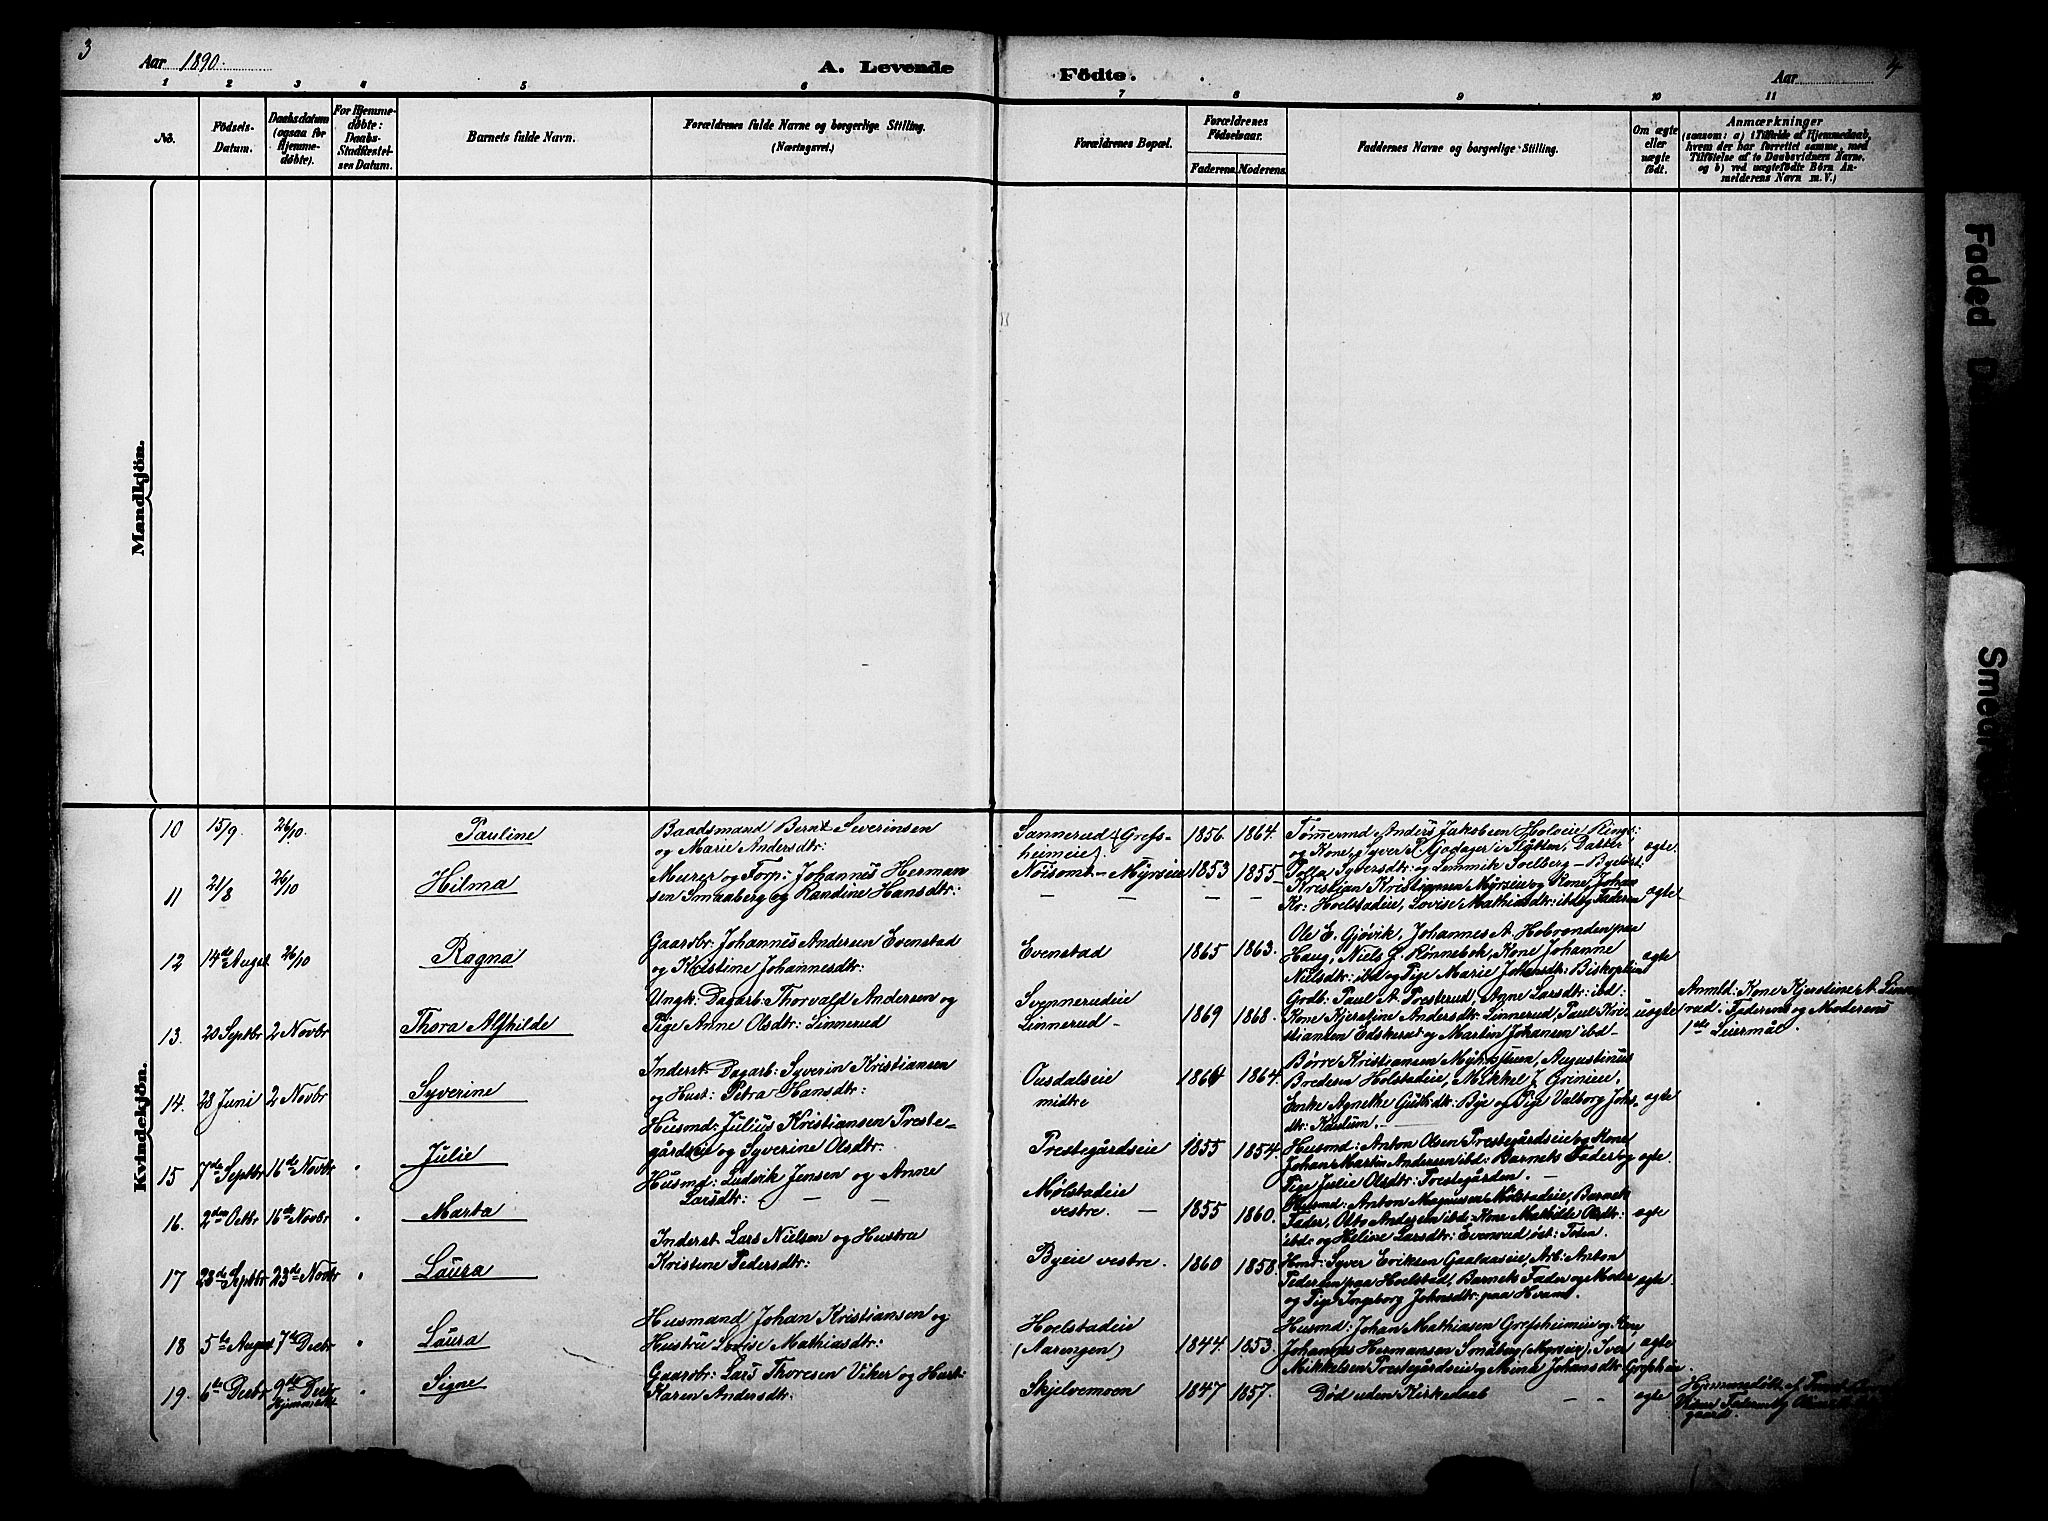 3
Aar 1890.
A. Levende
Födte.
Aar
4
1 2 3 4 5 6 7 8 9 10 11
No.
Födsels-Datum.
Daabsdatum (ogsaa for Hjemmedøbte).
For Hjemmedøbte: Daabs-Stadfæstelses Datum.
Barnets fulde Navn.
Forældrenes fulde Navne og borgerlige Stilling. (Næringsvei.)
Forældrenes Bopæl.
Forældrenes Födselsaar.
Faderens. Moderens.
Faddernes Navne og borgerlige Stilling.
Om ægte eller uægte født.
Anmærkninger
(saasom: a) i Tilfælde af Hjemmedaab, hvem der har forrettet samme, med Tilföielse af to Daabsvidners Navne, og b) ved uægtefødte Børn Anmelderens Navn m. V.)
Mandkjön.
Kvindekjön.
10 15/9 26/10 Pauline
Baadsmand Bernt Severinsen
og Marie Andersdtr:
Sannerud (Grefsheimeie).
1856 1864.
Tømermd Anders Jakobsen Holoeie Rings:
og Kone, Syver P. Gjødager i Slotten, Datter
ægte.
11 21/8 26/10 Hilma
Murer og Forp: Johannes Hermansen Smaaberg og Randine Hansdtr:
Nøisomt - Myrseie
1853 1855
Kristian Kristiansen Myrseie og Kone, Johan
Kr: Hoelstadeie, Lovise Mathiasdtr: ibd og Faderen
ægte.
12 14de Augst. 26/10 Ragna
Gaardbr: Johannes Andersen Evenstad
og Kristine Johannesdtr:
Evenstad
1865 1863.
Ole E. Gjøvik, Johannes A. Hobronden paa
Haug, Niels J. Rønnebek, Kone Johanne
Nielsdtr: ibd og Pige Marie Johansdtr: Biskoplien
ægte
13. 20 Septbr 2 Novbr Thora Alfhilde
Ungk: Dagarb: Thorvald Andersen og
Pige Anne Olsdtr: Linnerud
Svennerudeie
Linnerud
1869 1868.
Grdb: Paul A. Presterud, Anne Larsdtr: ibd:
Kone Kjerstine Andersdtr: Linnerud, Paul Kristiansen Edskerud og Martin Johansen ibd
uægte
Anmld: Kone Kjerstine A. Linnerud: Faderens og Moderens
1ste Leiermål.
14. 28 Juni 2 Novbr Syverine
Inderst Dagarb: Syverin Kristiansen
og Hust: Petra Hansdtr:
Ousdalseie
midtre
1864 1864.
Børre Kristiansen Myhrstuen, Augustinus
Bredesen Holstadeie, Mikkel J. Grinieie.
Enke Agnethe Gulbdtr: Bye og Pige Valborg Johsdtr:
ægte
15 7de Septbr 16de Novbr Julie
Husmd: Julius Kristiansen Prestegårdseie og Syverine Olsdtr.
Prestegårdseie
1855 1854.
Husmd: Anton Olsen Prestegårdseie og Kone
Johan Martin Andersen ibd: Barnets Fader og
Pige Julie Olsdtr: Prestegården.
ægte.
16. 2den Octbr 16de Novbr Marta
Husmd: Ludvik Jensen og Anne
Larsdtr:
Mølstadeie
vestre.
1855 1860.
Husmd: Anton Magnusen Mølstadeie, Barnets
Fader, Otto Andersen ibd: Kone Mathilde Olsdtr:
ibd: og Heline Larsdtr: Evenrud, øst: Toten.
ægte
17 23de Septbr 23de Novbr Laura
Inderst Lars Nielsen og Hustru
Kristine Pedersdtr:
Byeie vestre.
1860 1858.
Hmd: Syver Eriksen Gaalaaseie, Arb: Anton
Pedersen paa Hoelstad, Barnets Fader og Moder
og Pige Ingeborg Johnsdtr: paa Hvamt.
ægte
18 5te Augst. 7de Decbr Laura
Husmand Johan Kristiansen og
Hustru Lovise Mathiasdtr:
Hoelstadeie
(Aarengen)
1844. 1853.
Husmd: Johan Mathiasen Grefsheimeie og Kone,
Johannes Hermansen Småberg (Myrseie), Iver
Mikkelsen Prestegårdseie og Mina Johansdtr: Grefsheim.
ægte
19. 6te Decbr 9de Decbr Hjemmedøbt Signe
Gaardbr: Lars Thoresen Viker og Hust:
Karen Andersdtr:
Skjelvemoen
1847 1857.
Død uden Kirkedaab
ægte
Hjemmedøbt af
Faded
Smea